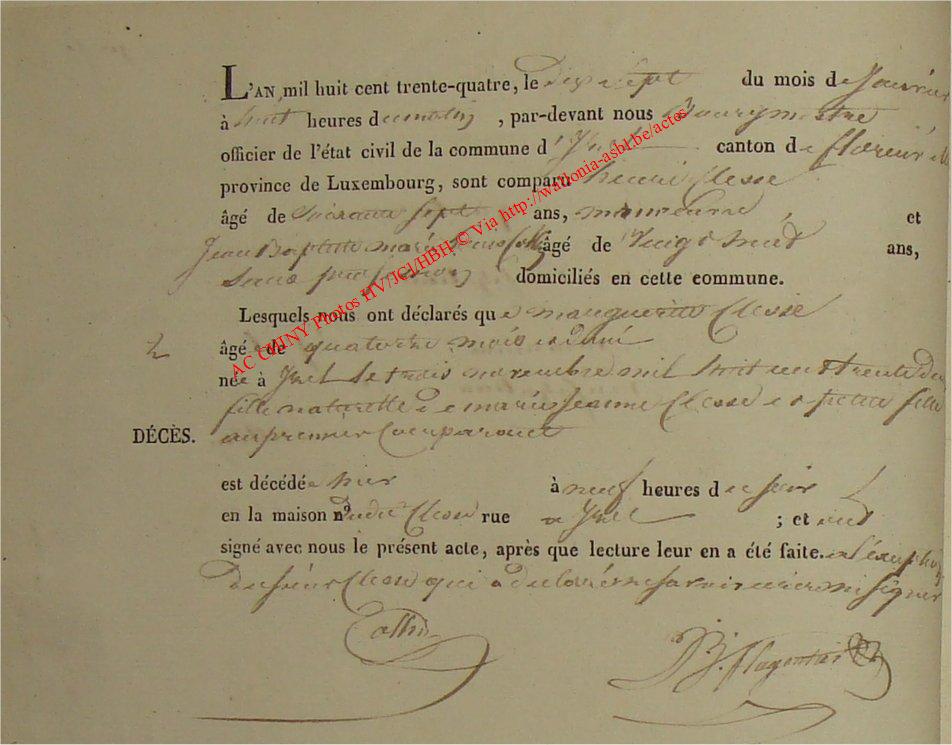 L'AN mil huit cent trente-quatre, le dix sept du mois de Janvier
à huit heures du matin, par-devant nous Bourgmestre
officier de l'état civil de la commune d' canton de
province de Luxembourg, sont comparu henri Clesse
âgé de Soixante Sept ans, manœuvre et
Jean Baptiste âgé de Vingt huit ans,
domiciliés en cette commune.
Lesquels nous ont déclarés que marguerite Clesse
2 âgé de quatorze mois et demi
née à Le trois novembre mil huit cent trente deux
fille naturelle de marie Jeanne Clesse et petite fille
DÉCÈS. au premier Comparant
est décédée hier à neuf heures du soir
en la maison nº dudit Clesse rue ; et ont
signé avec nous le présent acte, après que lecture leur en a été faite. a l'exception
du sieur Clesse qui a déclaré ne savoir écrire ni signer
Collin
JB.
AC CHINY Photos HV/JCl/HBH © Via http://wallonia-asbl.be/actes